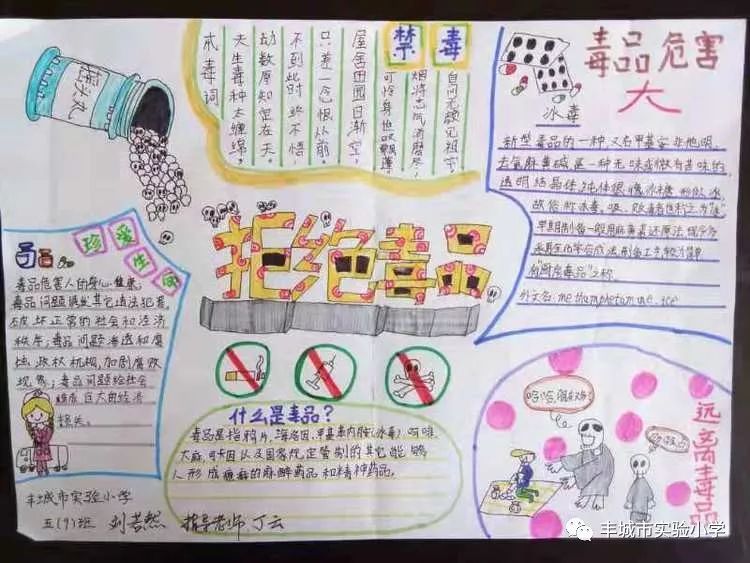 摇头丸
禁毒
自问无颜见祖宗,
屋舍田园日渐空,
只差一念恨从前,
不到此时终不悟
劫数原知定在天。
天生毒种太缠绵,
戒毒词
毒品危害
大
冰毒
新型毒品的一种,又名甲基苯非他明、
去氧麻黄碱是一种无味或微有苦味的
透明结晶体,纯体很像冰糖,形似冰,
故俗称冰毒,吸、贩毒者也称之为"冰"。
早期制备一般用麻黄素还原法,
拒绝毒品
珍爱生命
毒品危害人的身心健康。
毒品问题诱发其它违法犯罪,
破坏正常的社会和经济
秩序;毒品问题渗透和腐
蚀政权机构,加剧腐败
现象;毒品问题给社会
造成巨大的经济
损失。
什么是毒品?
毒品是指鸦片、海洛因、甲基苯丙胺(冰毒)、吗啡、
大麻、可卡因以及国家规定管制的其它能够
人形成瘾癖的麻醉药品和精神药品。
远离毒品
丰城市实验小学
五(9)班 刘芸然 指导老师 丁云
丰城市实验小学